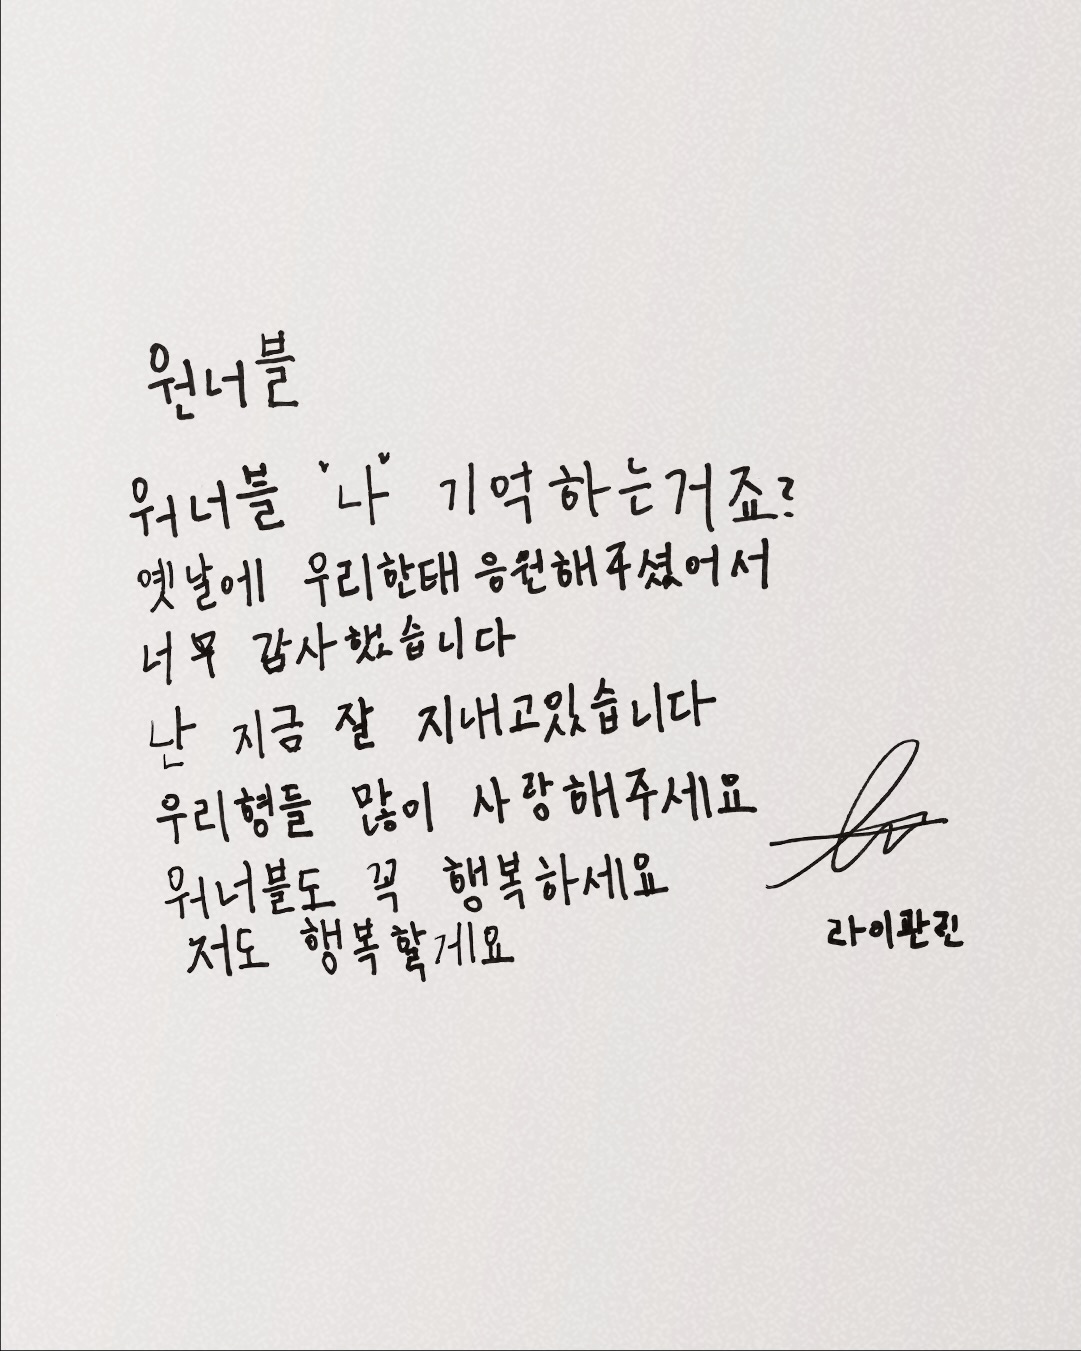 원너블
워너블 "나" 기억하는거죠?
옛날에 우리한태 응원해주셨어서
너무 감사했습니다
난 지금 잘 지내고있습니다
우리형들 많이 사랑해주세요
워너블도 꼭 행복하세요
저도 행복할게요
라이관린